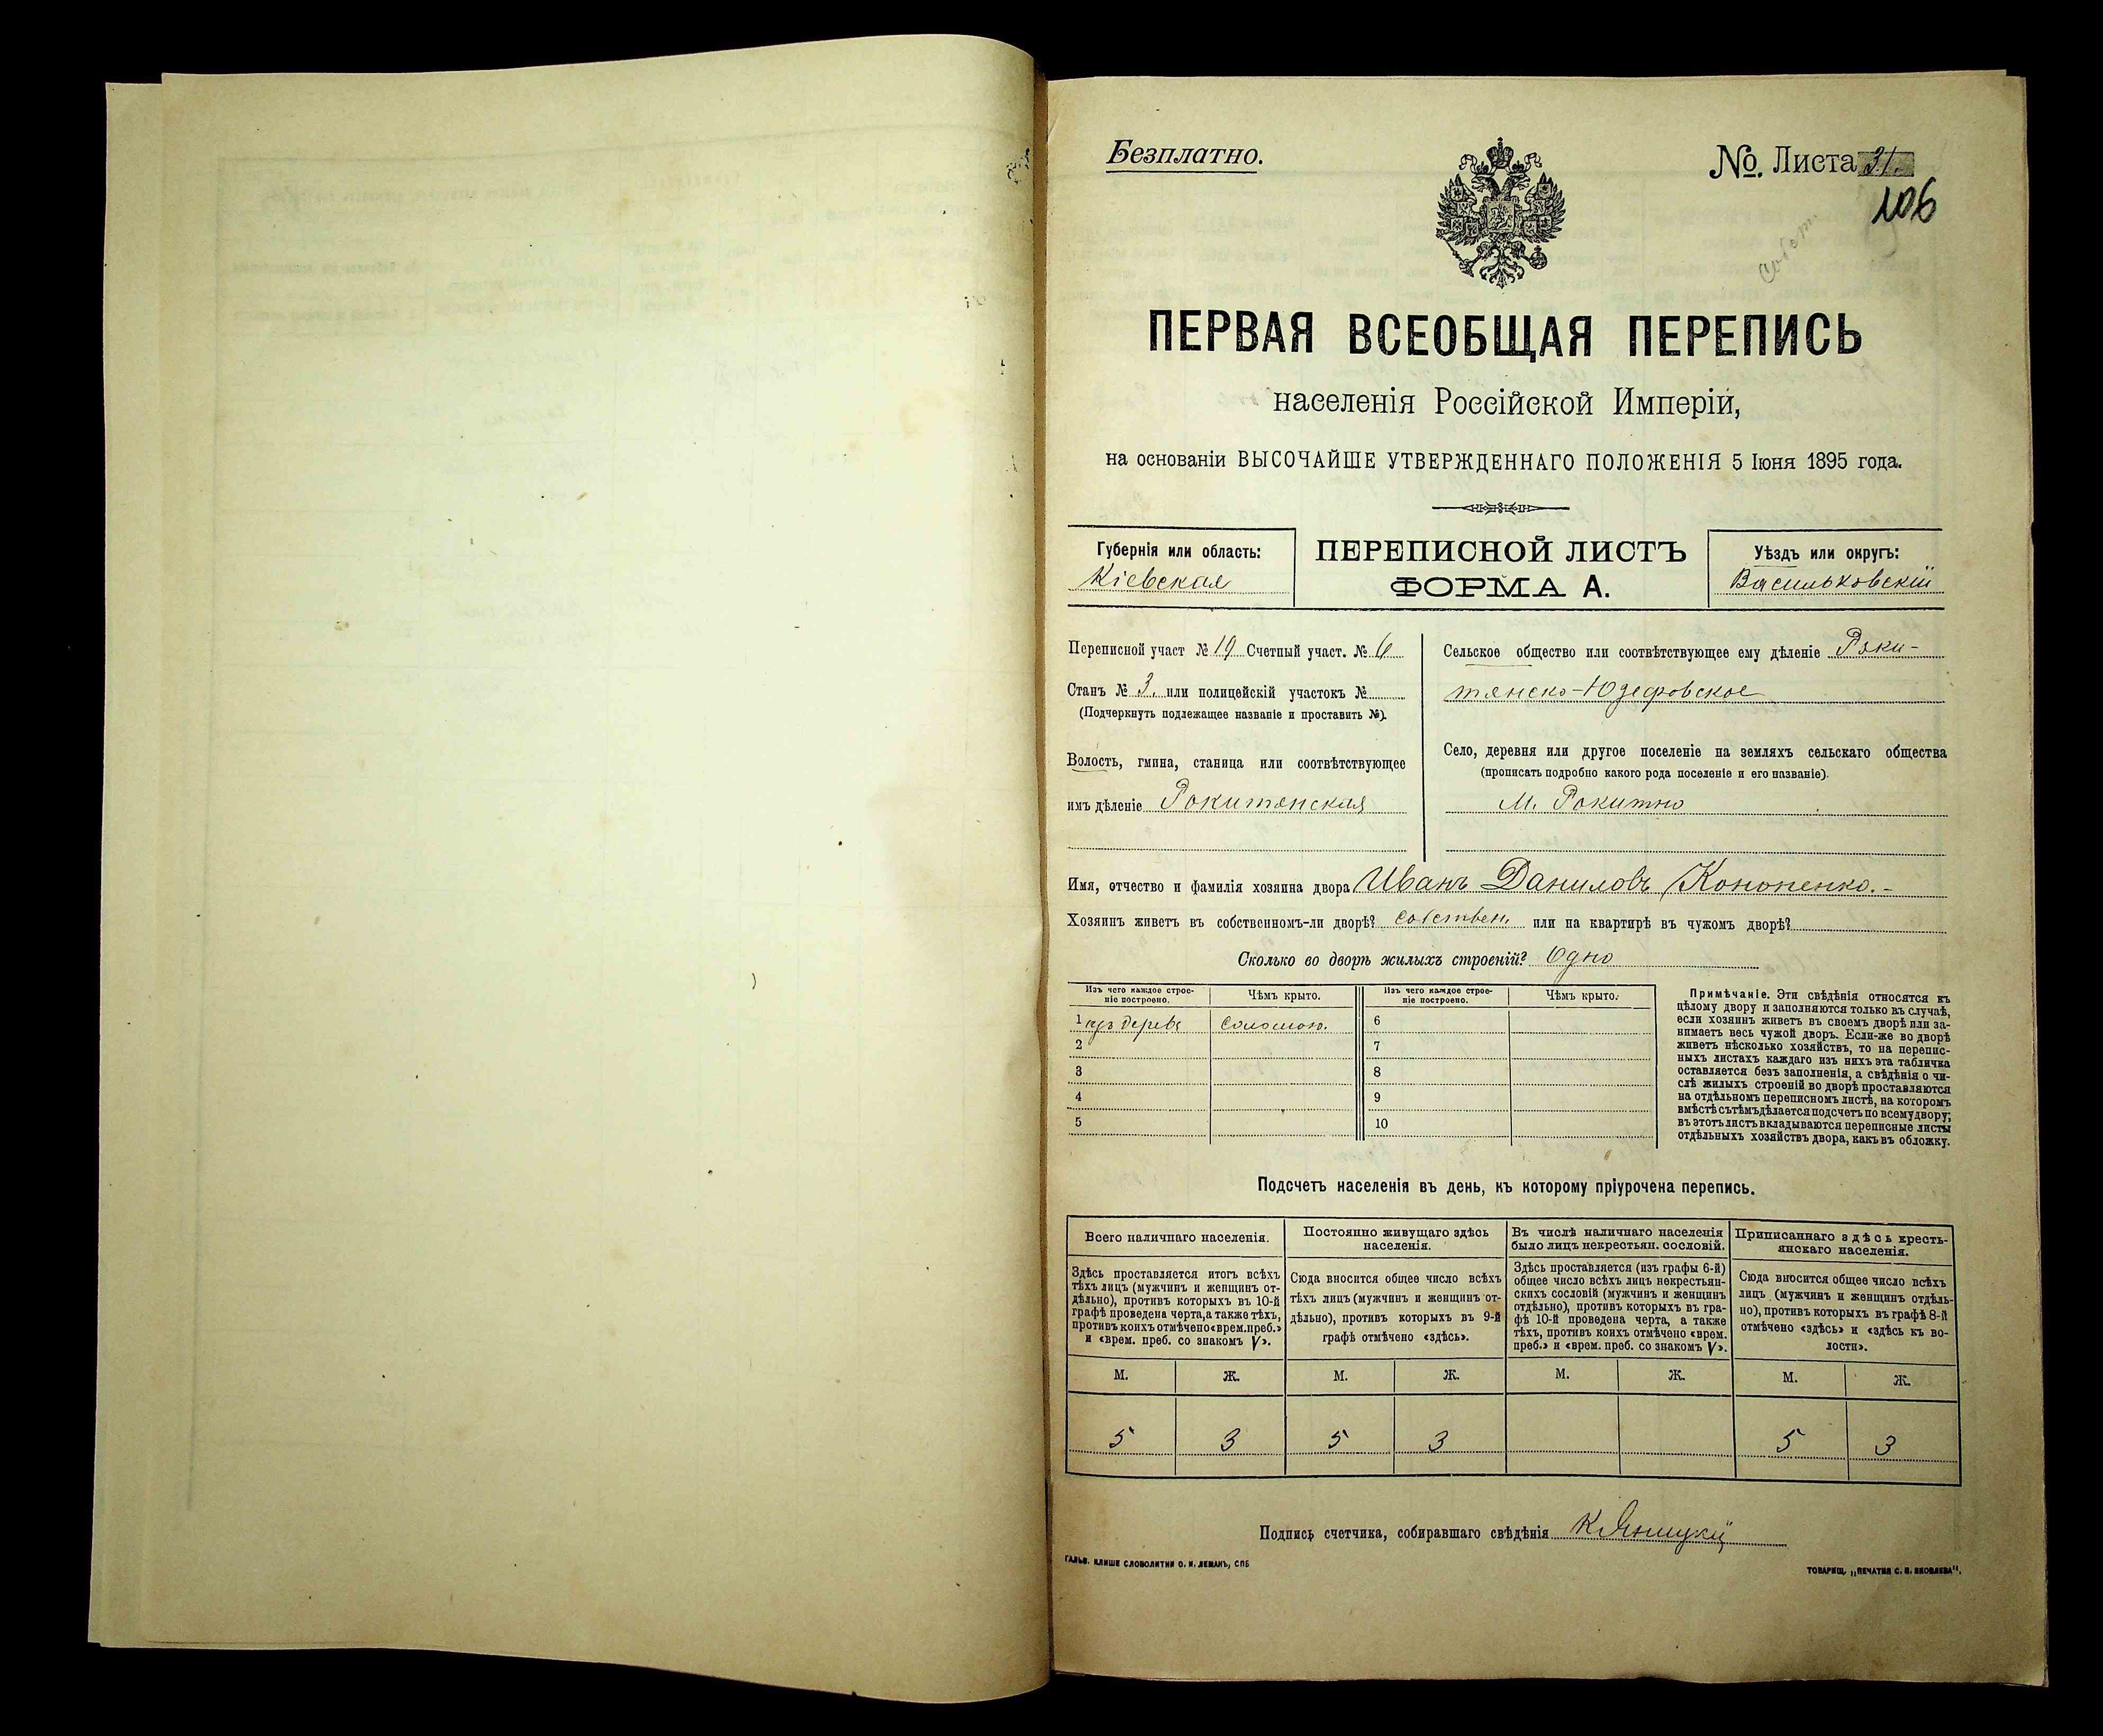 Безплатно.
№. Листа 31.
106
ПЕРВАЯ ВСЕОБЩАЯ ПЕРЕПИСЬ
населенія Россійской Имперіи,
на основаніи ВЫСОЧАЙШЕ УТВЕРЖДЕННАГО ПОЛОЖЕНІЯ 5 Іюня 1895 года.
Губернія или область:
Кіевская
ПЕРЕПИСНОЙ ЛИСТЪ
ФОРМА А.
Уѣздъ или округъ:
Васильковскій
Переписной участ № 19 Счетный участ. № 6
Станъ № 3. или полицейскій участокъ №
(Подчеркнуть подлежащее названіе и проставить №).
Волость, гмина, станица или соотвѣтствующее
имъ дѣленіе Рокитянская
Сельское общество или соотвѣтствующее ему дѣленіе Роки-
тянско-Юзефовское
Село, деревня или другое поселеніе на земляхъ сельскаго общества
(прописать подробно какого рода поселеніе и его названіе).
М. Рокитно
Имя, отчество и фамилія хозяина двора Иванъ Даниловъ Кононенко.-
Хозяинъ живетъ въ собственномъ-ли дворѣ? собствен. или на квартирѣ въ чужомъ дворѣ?
Сколько во дворѣ жилыхъ строеній? Одно
Изъ чего каждое строе-
ніе построено.
Чѣмъ крыто.
Изъ чего каждое строе-
ніе построено.
Чѣмъ крыто.
1 изъ дерева соломою. 6
2 7
3 8
4 9
5 10
Примѣчаніе. Эти свѣдѣнія относятся къ
цѣлому двору и заполняются только въ случаѣ,
если хозяинъ живетъ въ своемъ дворѣ или за-
нимаетъ весь чужой дворъ. Если-же во дворѣ
живетъ нѣсколько хозяйствъ, то на перепис-
ныхъ листахъ каждаго изъ нихъ эта табличка
оставляется безъ заполненія, а свѣдѣнія о чи-
слѣ жилыхъ строеній во дворѣ проставляются
на отдѣльномъ переписномъ листѣ, на которомъ
вмѣстѣ съ тѣмъ дѣлается подсчетъ по всему двору;
въ этотъ листъ вкладываются переписные листы
отдѣльныхъ хозяйствъ двора, какъ въ обложку.
Подсчетъ населенія въ день, къ которому пріурочена перепись.
Всего наличнаго населенія.
Здѣсь проставляется итогъ всѣхъ
тѣхъ лицъ (мужчинъ и женщинъ от-
дѣльно), противъ которыхъ въ 10-й
графѣ проведена черта, а также тѣхъ,
противъ коихъ отмѣчено «врем. преб.»
и «врем. преб. со знакомъ V».
Постоянно живущаго здѣсь
населенія.
Сюда вносится общее число всѣхъ
тѣхъ лицъ (мужчинъ и женщинъ от-
дѣльно), противъ которыхъ въ 9-й
графѣ отмѣчено «здѣсь».
Въ числѣ наличнаго населенія
было лицъ некрестьян. сословій.
Здѣсь проставляется (изъ графы 6-й)
общее число всѣхъ лицъ некрестьян-
скихъ сословій (мужчинъ и женщинъ
отдѣльно), противъ которыхъ въ гра-
фѣ 10-й проведена черта, а также
тѣхъ, противъ коихъ отмѣчено «врем.
преб.» и «врем. преб. со знакомъ V».
Приписаннаго здѣсь кресть-
янскаго населенія.
Сюда вносится общее число всѣхъ
лицъ (мужчинъ и женщинъ отдѣль-
но), противъ которыхъ въ графѣ 8-й
отмѣчено «здѣсь» и «здѣсь къ во-
лости».
М. Ж. М. Ж. М. Ж. М. Ж.
5 3 5 3 5 3
Подпись счетчика, собиравшаго свѣдѣнія
ГАЛЬВ. КЛИШЕ СЛОВОЛИТНИ О. И. ЛЕМАНЪ, СПБ
ТОВАРИЩ. „ПЕЧАТНЯ С. П. ЯКОВЛЕВА“.